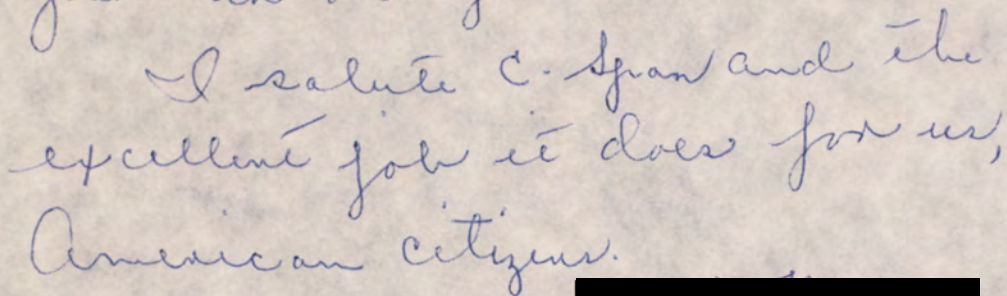 I salute C-Span and the
excellent job it does for us,
American citizens.